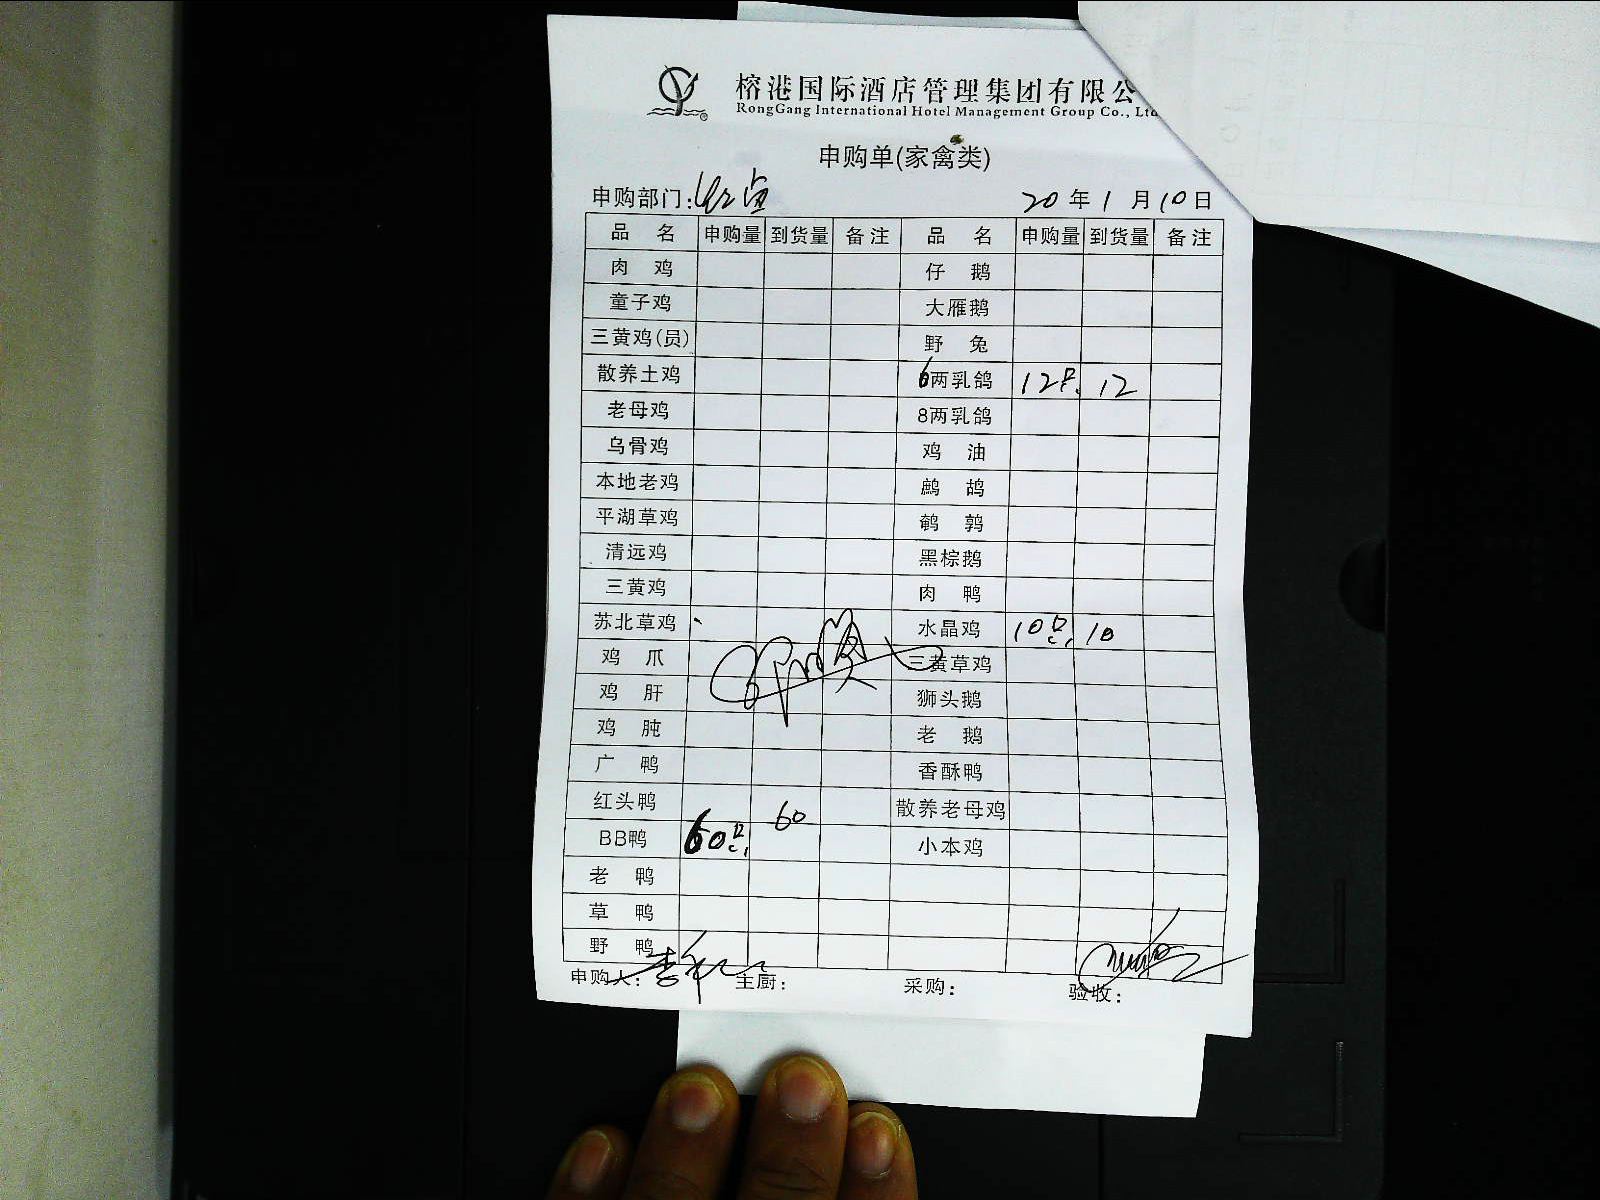 榕港国际酒店管理集团有限公
RongGang International Hotel Management Group Co., Ltd
申购单(家禽类)
申购部门: 20年1月10日
品名 申购量 到货量 备注 品名 申购量 到货量 备注
肉鸡 仔鹅
童子鸡 大雁鹅
三黄鸡(员) 野兔
散养土鸡 6两乳鸽 12只. 12
老母鸡 8两乳鸽
乌骨鸡 鸡油
本地老鸡 鹧鸪
平湖草鸡 鹌鹑
清远鸡 黑棕鹅
三黄鸡 肉鸭
苏北草鸡 水晶鸡 10只. 10
鸡爪 三黄草鸡
鸡肝 狮头鹅
鸡肫 老鹅
广鸭 香酥鸭
红头鸭 散养老母鸡
BB鸭 60只. 60 小本鸡
老鸭
草鸭
野鸭
申购人: 主厨: 采购: 验收: